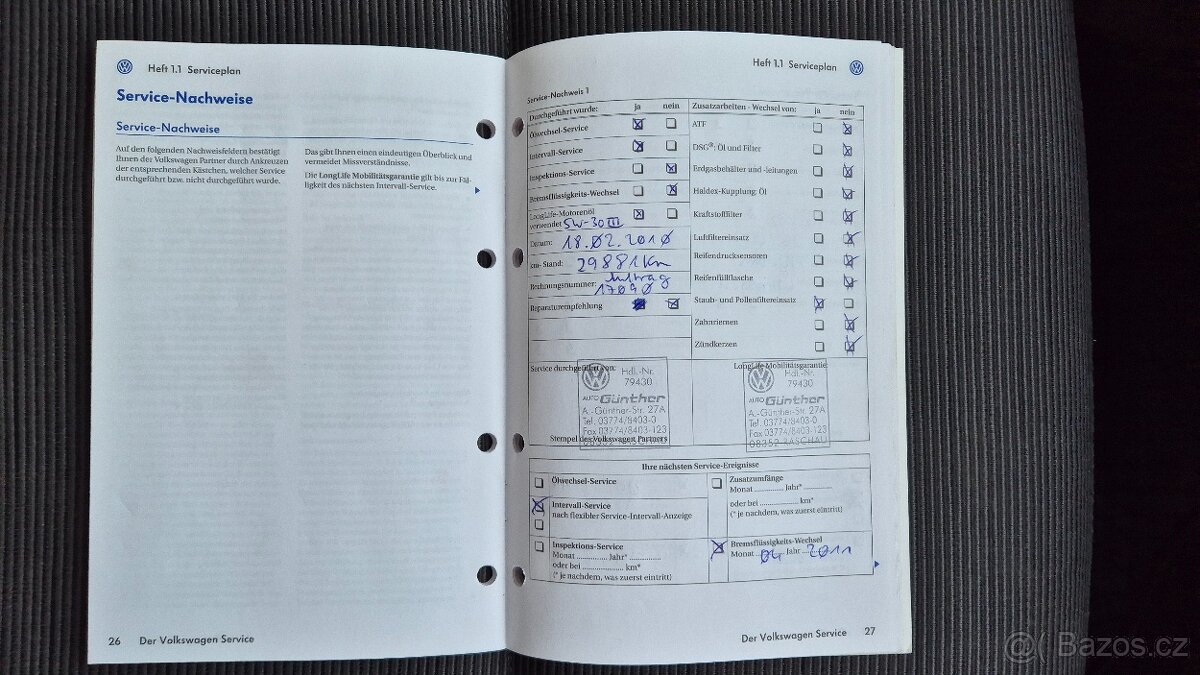 Heft 1.1 Serviceplan
Service-Nachweise
Service-Nachweise
Auf den folgenden Nachweisfeldern bestätigt
Ihnen der Volkswagen Partner durch Ankreuzen
der entsprechenden Kästchen, welcher Service
durchgeführt bzw. nicht durchgeführt wurde.
Das gibt Ihnen einen eindeutigen Überblick und
vermeidet Missverständnisse.
Die LongLife Mobilitätsgarantie gilt bis zur Fäl-
ligkeit des nächsten Intervall-Service.
26 Der Volkswagen Service
Heft 1.1 Serviceplan
Service-Nachweis 1
Durchgeführt wurde: ja nein
Ölwechsel-Service
Intervall-Service
Inspektions-Service
Bremsflüssigkeits-Wechsel
LongLife-Motorenöl
verwendet 5W-30 III
Datum: 18.02.2010
km-Stand: 29881 Km
Rechnungsnummer: Auftrag
17090
Reparaturempfehlung
Zusatzarbeiten - Wechsel von: ja nein
ATF
DSG®: Öl und Filter
Erdgasbehälter und -leitungen
Haldex-Kupplung: Öl
Kraftstofffilter
Luftfiltereinsatz
Reifendrucksensoren
Reifenfüllflasche
Staub- und Pollenfiltereinsatz
Zahnriemen
Zündkerzen
Service durchgeführt von:
Hdl.-Nr.
79430
AUTO Günther
A.-Günther-Str. 27A
Tel. 03774/8403-0
Fax 03774/8403-123
Stempel des Volkswagen Partners
LongLife Mobilitätsgarantie
Hdl.-Nr.
79430
AUTO Günther
A.-Günther-Str. 27A
Tel. 03774/8403-0
Fax 03774/8403-123
08352 RASCHAU
Ihre nächsten Service-Ereignisse
Ölwechsel-Service
Intervall-Service
nach flexibler Service-Intervall-Anzeige
Inspektions-Service
Monat ............ Jahr* ............
oder bei ............ km*
(* je nachdem, was zuerst eintritt)
Zusatzumfänge
Monat ............ Jahr* ............
oder bei ............ km*
(* je nachdem, was zuerst eintritt)
Bremsflüssigkeits-Wechsel
Monat 04 Jahr 2011
Der Volkswagen Service 27
Bazos.cz